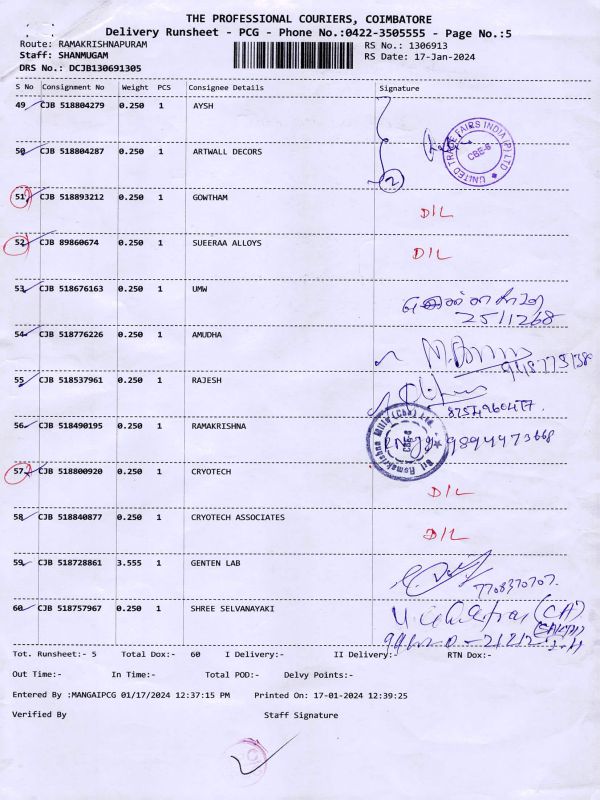 THE PROFESSIONAL COURIERS, COIMBATORE
Delivery Runsheet - PCG - Phone No.:0422-3505555 - Page No.:5
Route: RAMAKRISHNAPURAM RS No.: 1306913
Staff: SHANMUGAM RS Date: 17-Jan-2024
DRS No.: DCJB130691305
S No Consignment No Weight PCS Consignee Details Signature
49 CJB 518804279 0.250 1 AYSH
50 CJB 518804287 0.250 1 ARTWALL DECORS
2
UNITED TRADE FAIRS INDIA (P) LTD
CBE-6
51 CJB 518893212 0.250 1 GOWTHAM D/L
52 CJB 89860674 0.250 1 SUEERAA ALLOYS D/L
53 CJB 518676163 0.250 1 UMW
2511268
54 CJB 518776226 0.250 1 AMUDHA
55 CJB 518537961 0.250 1 RAJESH
56 CJB 518490195 0.250 1 RAMAKRISHNA 9894473668
Sri Ramakrishna Mills (Cbe) Ltd.
57 CJB 518800920 0.250 1 CRYOTECH D/L
58 CJB 518840877 0.250 1 CRYOTECH ASSOCIATES D/L
59 CJB 518728861 3.555 1 GENTEN LAB 7708370707.
60 CJB 518757967 0.250 1 SHREE SELVANAYAKI
Tot. Runsheet:- 5 Total Dox:- 60 I Delivery:- II Delivery:- RTN Dox:-
Out Time:- In Time:- Total POD:- Delvy Points:-
Entered By :MANGAIPCG 01/17/2024 12:37:15 PM Printed On: 17-01-2024 12:39:25
Verified By Staff Signature